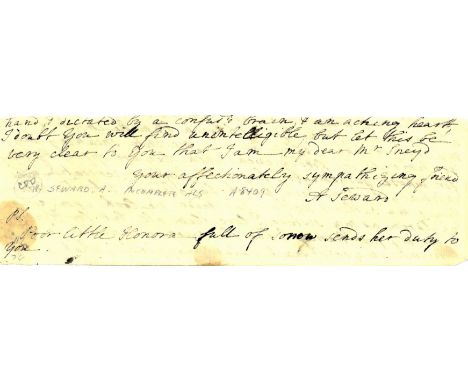 hand; dictated by a confus'd brain & an aching heart
I doubt You will find unintelligible but let this be
very clear to You that I am my dear Mr Sneyd
Your affectionately sympathizing Friend
SEWARD. A. INCOMPLETE ALS A8499
A Seward
PS.
Poor little Honora full of sorrow sends her duty to
You